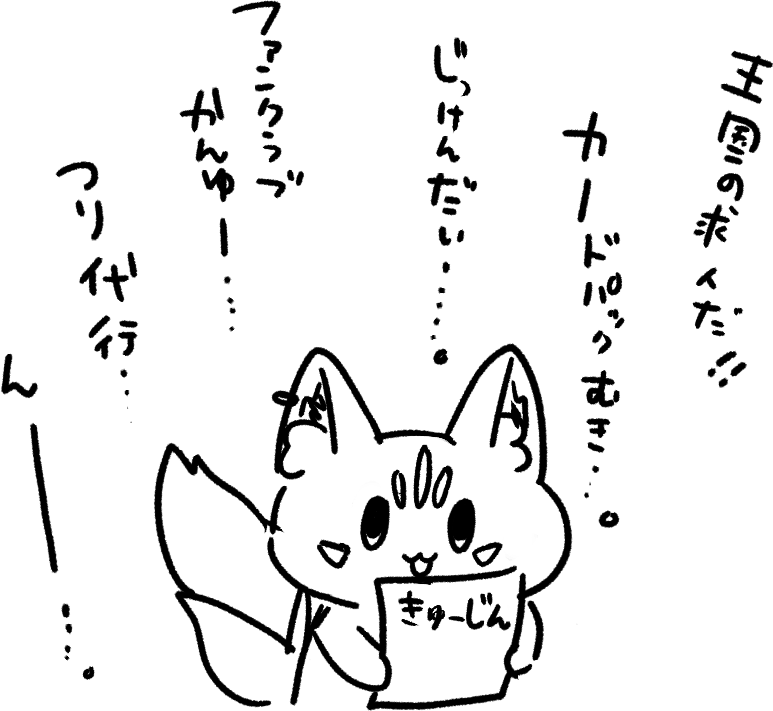 王国の求人だ!!
カードパックむき…。
じっけんだい……。
ファンクラブ
かんゆー……
つり代行……
んー……。
きゅーじん